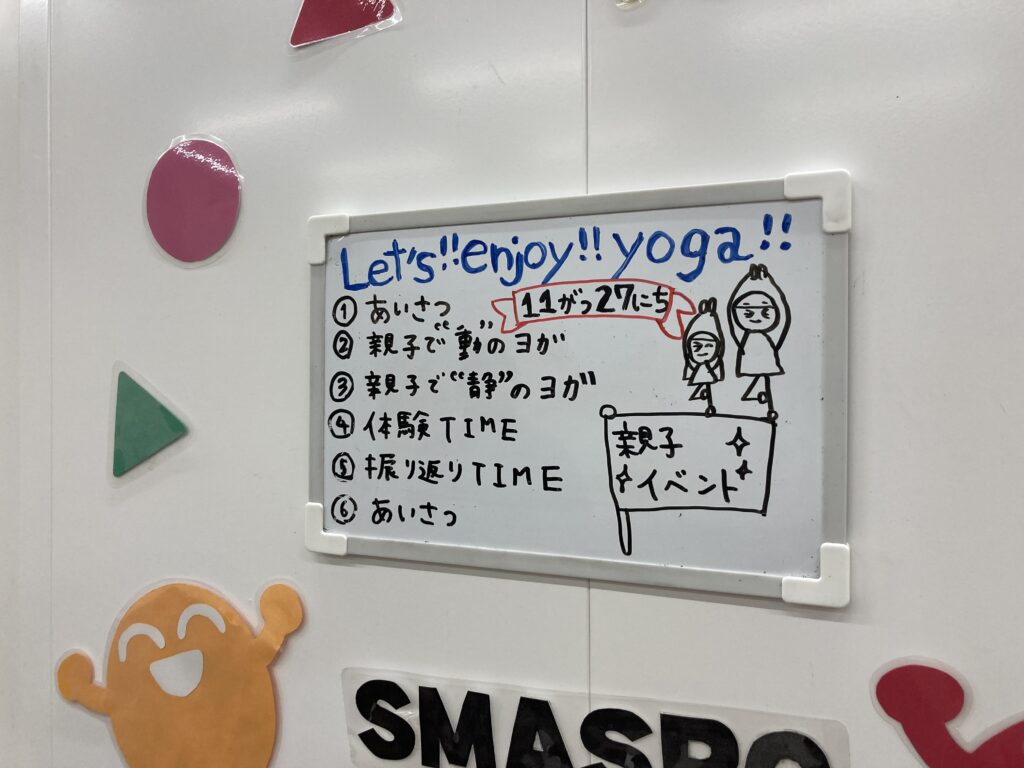 Let's!!enjoy!!yoga!!
11がつ27にち
① あいさつ
② 親子で“動”のヨガ
③ 親子で“静”のヨガ
④ 体験TIME
⑤ 振り返りTIME
⑥ あいさつ
親子
イベント
SMASPO